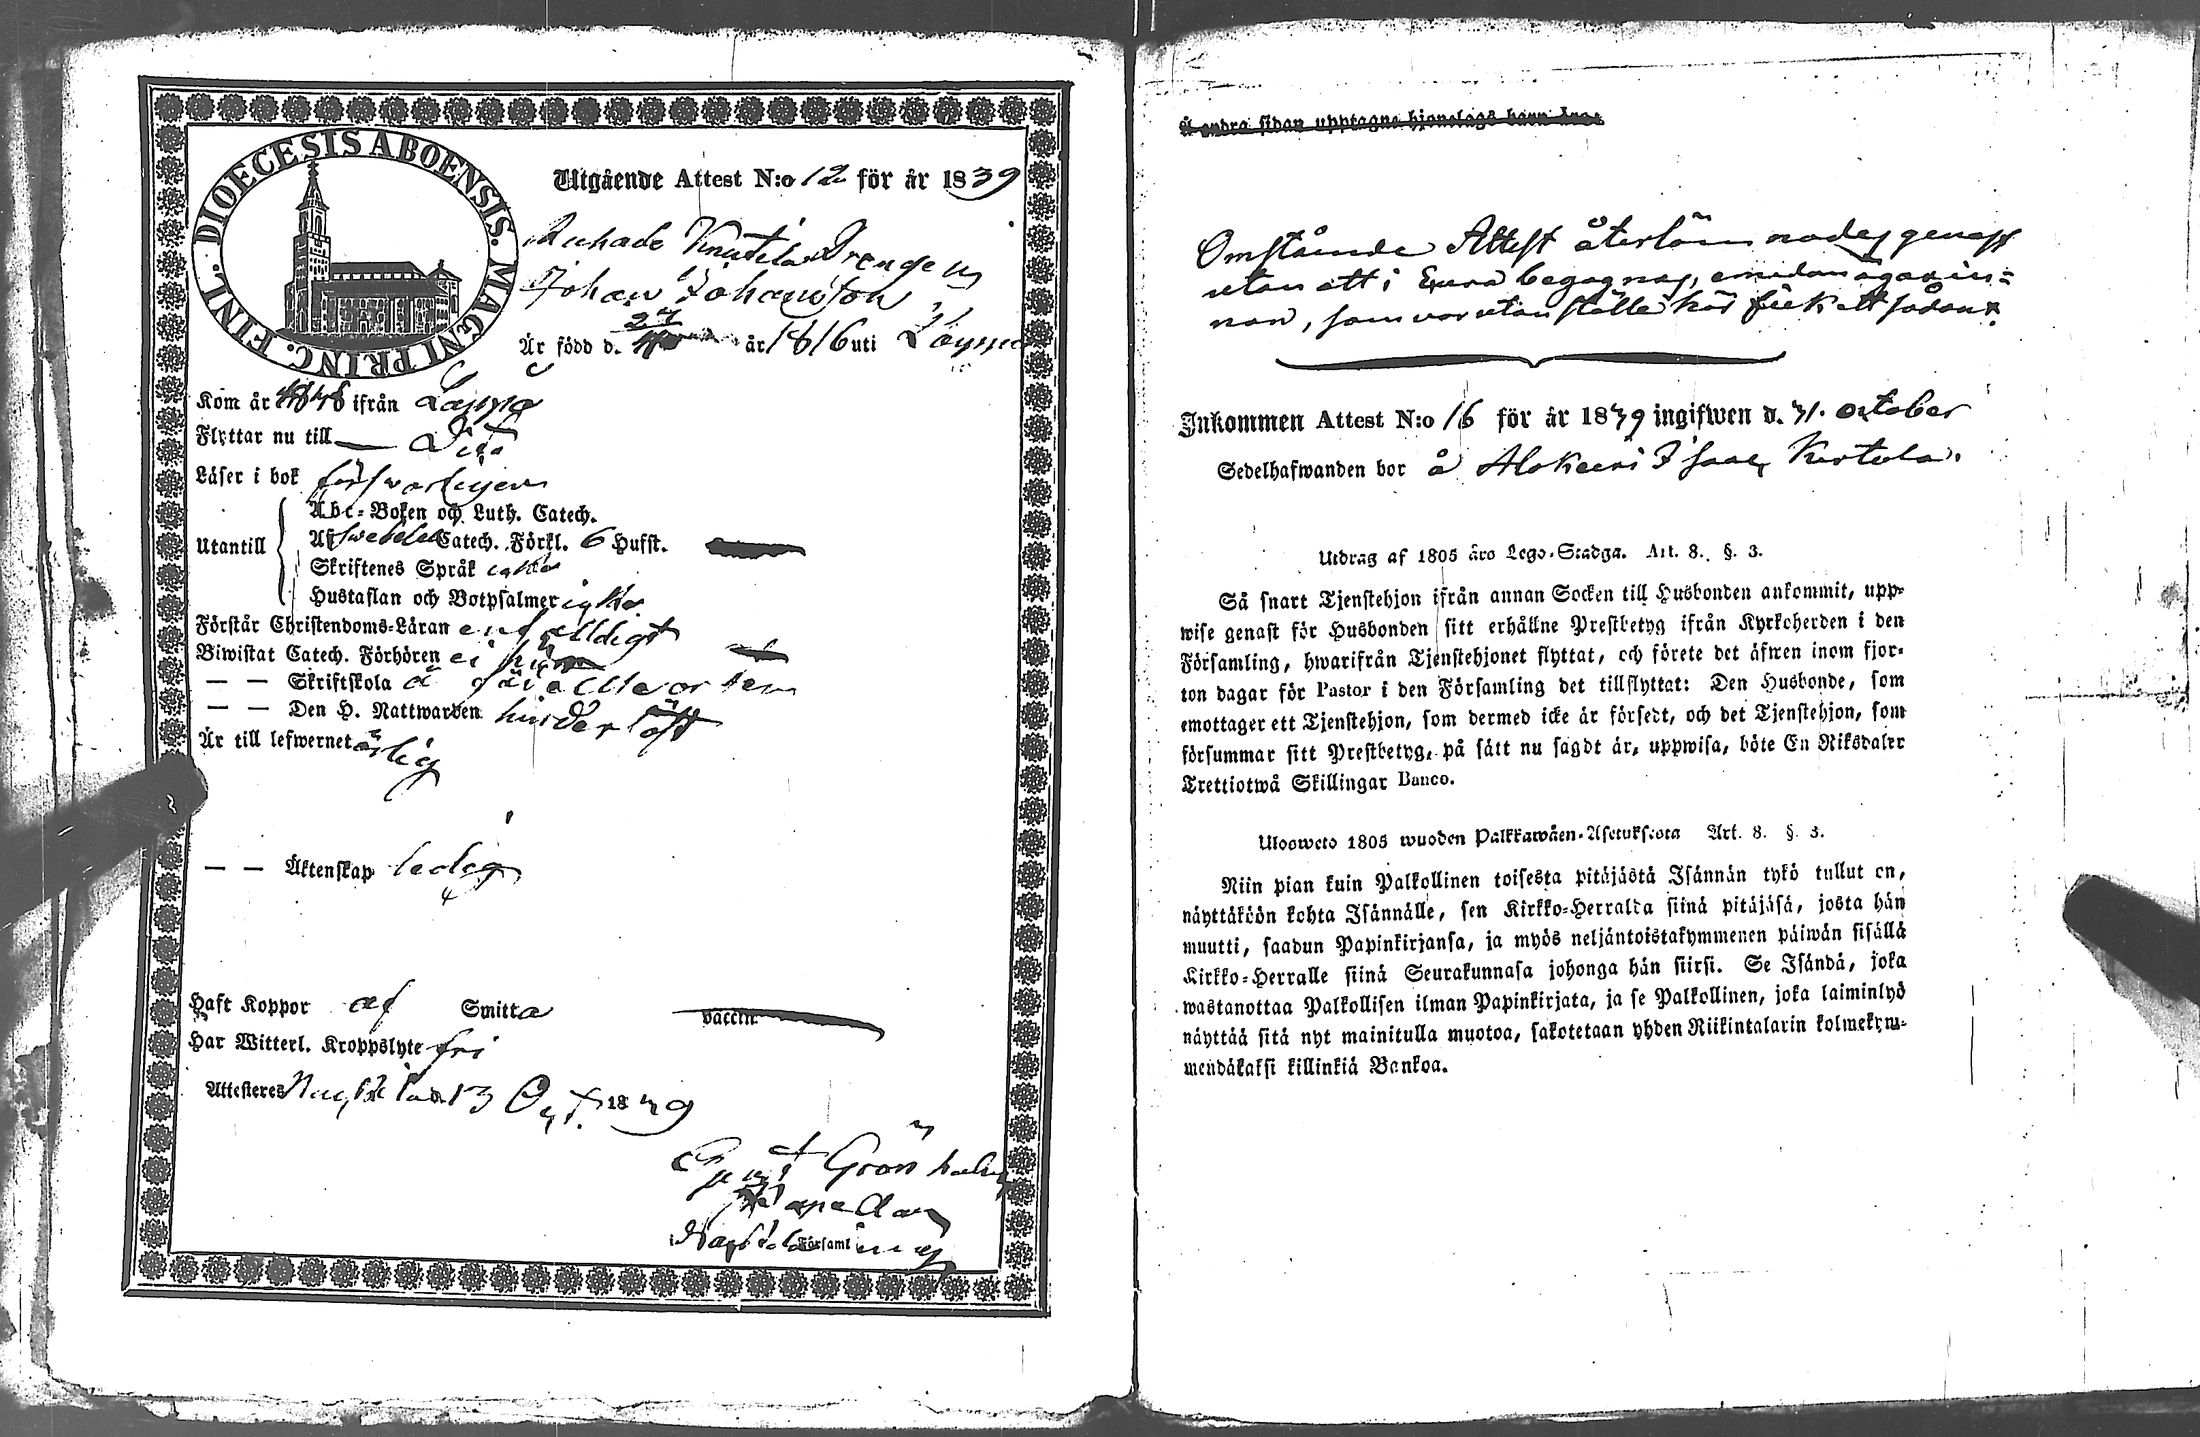 DIOECESIS ABOENSIS. MAGNI PRINC. FINL.
Utgående Attest N:o 12 för år 1839
Drengen
Johan Johansson
Är född d. 27 år 1816 uti Loymo
Kom år ifrån Loymo
Flyttar nu till Dito
Läser i bok försvarligen
Utantill
Abc-Boken och Luth. Catech.
Af Svebelii Catech. Förkl. 6 Hufst.
Skriftenes Språk icke
Hustaflan och Botpsalmer icke
Förstår Christendoms-Läran enfalldigt
Biwistat Catech. Förhören ei här
— — Skriftskola å
— — Den H. Nattwarden hinderlöst
Är till lefwernet ärlig
— — Äktenskap ledig
Haft Koppor af Smitta vaccin
Har Witterl. Kroppslyte fri
Attesteres 13 Oct. 1839
Grönholm
Capellan
Församl
Å andra sidan upptagne hjonelags barn äro:
Omstående Attest återlämnades genast
utan att i Eura begagnas, emedan ägarin-
nan, som var utan ställe här fick ett sådant.
Inkommen Attest N:o 16 för år 1839 ingifwen d. 31. October
Sedelhafwanden bor å
Utdrag af 1805 års Lego-Stadga. Art. 8. §. 3.
Så snart Tjenstehjon ifrån annan Socken till Husbonden ankommit, upp-
wise genast för Husbonden sitt erhållne Prestbetyg ifrån Kyrkoherden i den
Församling, hwarifrån Tjenstehjonet flyttat, och förete det äfwen inom fjor-
ton dagar för Pastor i den Församling det tillflyttat: Den Husbonde, som
emottager ett Tjenstehjon, som dermed icke är försedt, och det Tjenstehjon, som
försummar sitt Prestbetyg, på sätt nu sagdt är, uppwisa, böte En Riksdaler
Trettiotwå Skillingar Banco.
Ulooweto 1805 wuoden Palkkawäen-Asetuksesta Art. 8. §. 3.
Niin pian kuin Palkollinen toisesta pitäjästä Isännän tykö tullut on,
näyttäköön kohta Isännälle, sen Kirkko-Herralda siinä pitäjäsä, josta hän
muutti, saadun Papinkirjansa, ja myös neljäntoistakymmenen päiwän sisällä
Kirkko-Herralle siinä Seurakunnasa johonga hän siirsi. Se Isändä, joka
wastanottaa Palkollisen ilman Papinkirjata, ja se Palkollinen, joka laiminlyö
näyttää sitä nyt mainitulla muotoa, sakotetaan yhden Riikintalarin kolmekym-
mendäkaksi killinkiä Bankoa.